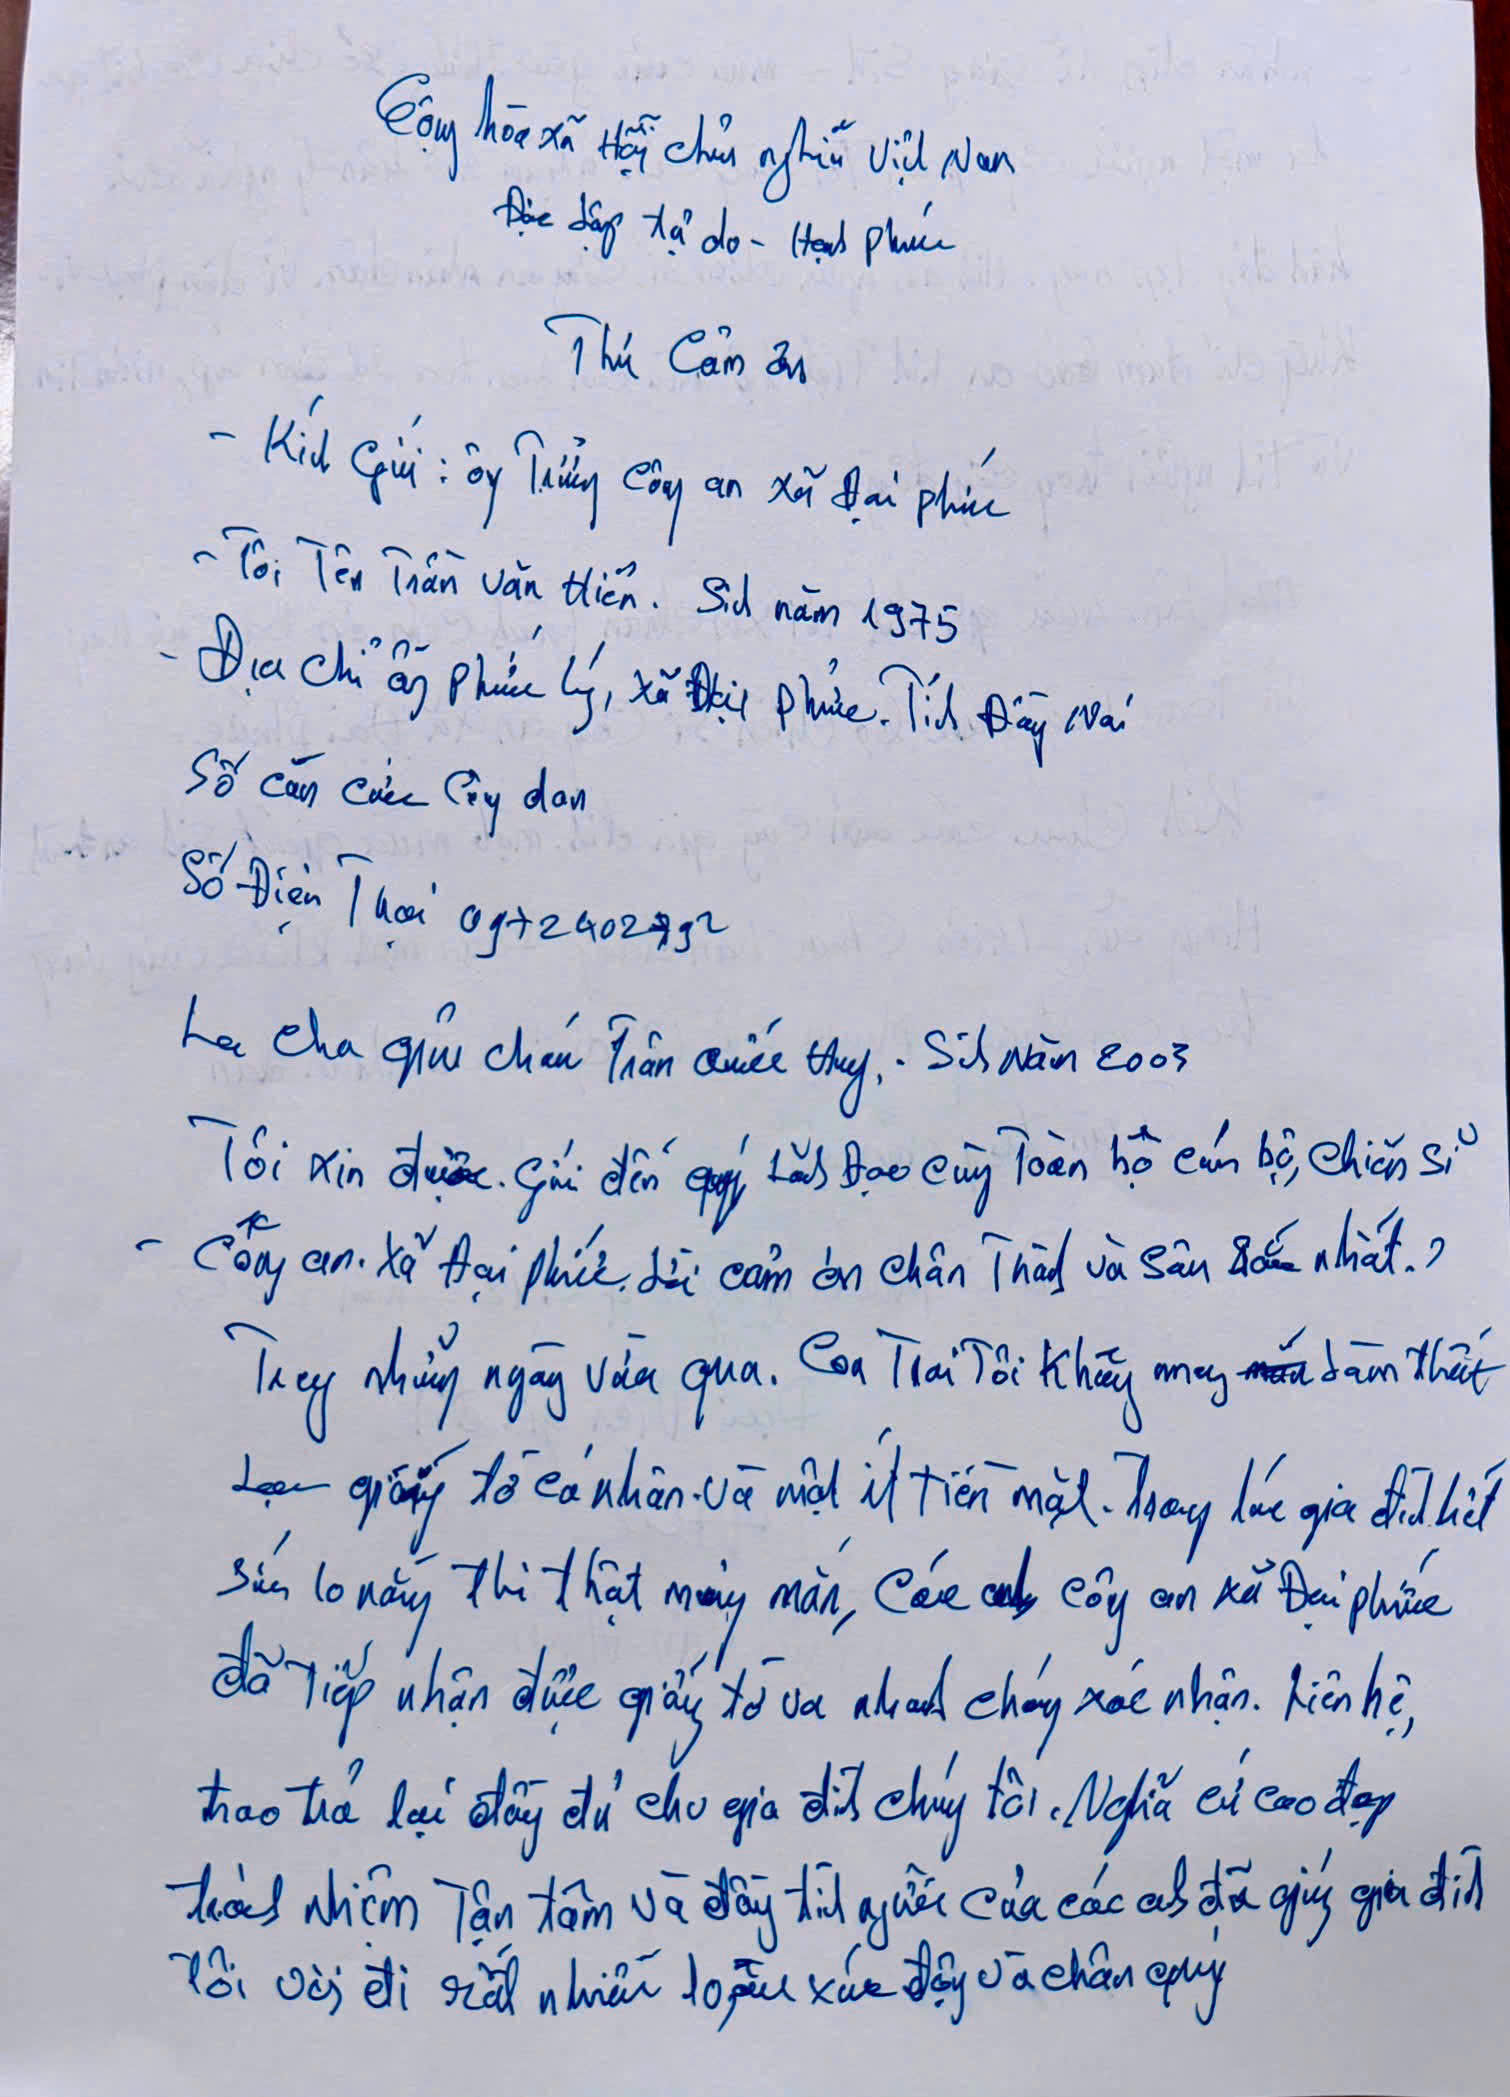 Cộng hòa xã Hội chủ nghĩa Việt Nam
Độc lập tự do - Hạnh phúc
Thư Cảm ơn
- Kính Gửi: ông Trưởng Công an xã Đại phúc
- Tôi Tên Trần Văn Hiến. Sinh năm 1975
- Địa chỉ ấp Phước Lý, xã Đại phước. Tỉnh Đồng Nai
Số căn cước Công dan
Số Điện Thoại 0972402792
La cha của cháu Trần Quốc Huy, . Sinh Năm 2003
Tôi xin được. Gửi đến quý Lãnh Đạo cùng Toàn bộ cán bộ, chiến sĩ
- Công an. Xã Đại phước. Lời cảm ơn chân Thành và sâu sắc nhất.
Trong những ngày vừa qua. Con Trai Tôi Không may làm thất
Lạc giấy tờ cá nhân. và một ít tiền mặt. Trong lúc gia đình hết
sức lo nắng thì thật may mắn, Các anh công an xã Đại phước
đã Tiếp nhận được giấy tờ va nhanh chóng xác nhận. Liên hệ,
trao trả lại đầy đủ cho gia đình chúng tôi. Nghĩa cử cao đẹp
trách nhiệm Tận tâm và đầy tình người của các anh đã giúp gia đình
Tôi vơi đi rất nhiều lo xúc động và chân quý